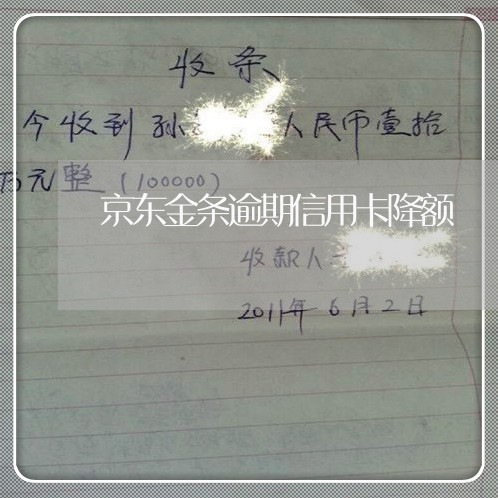 收条
今收到孙 人民币壹拾
万元整（100000）
京东金条逾期信用卡降额
收款人
2011年6月2日